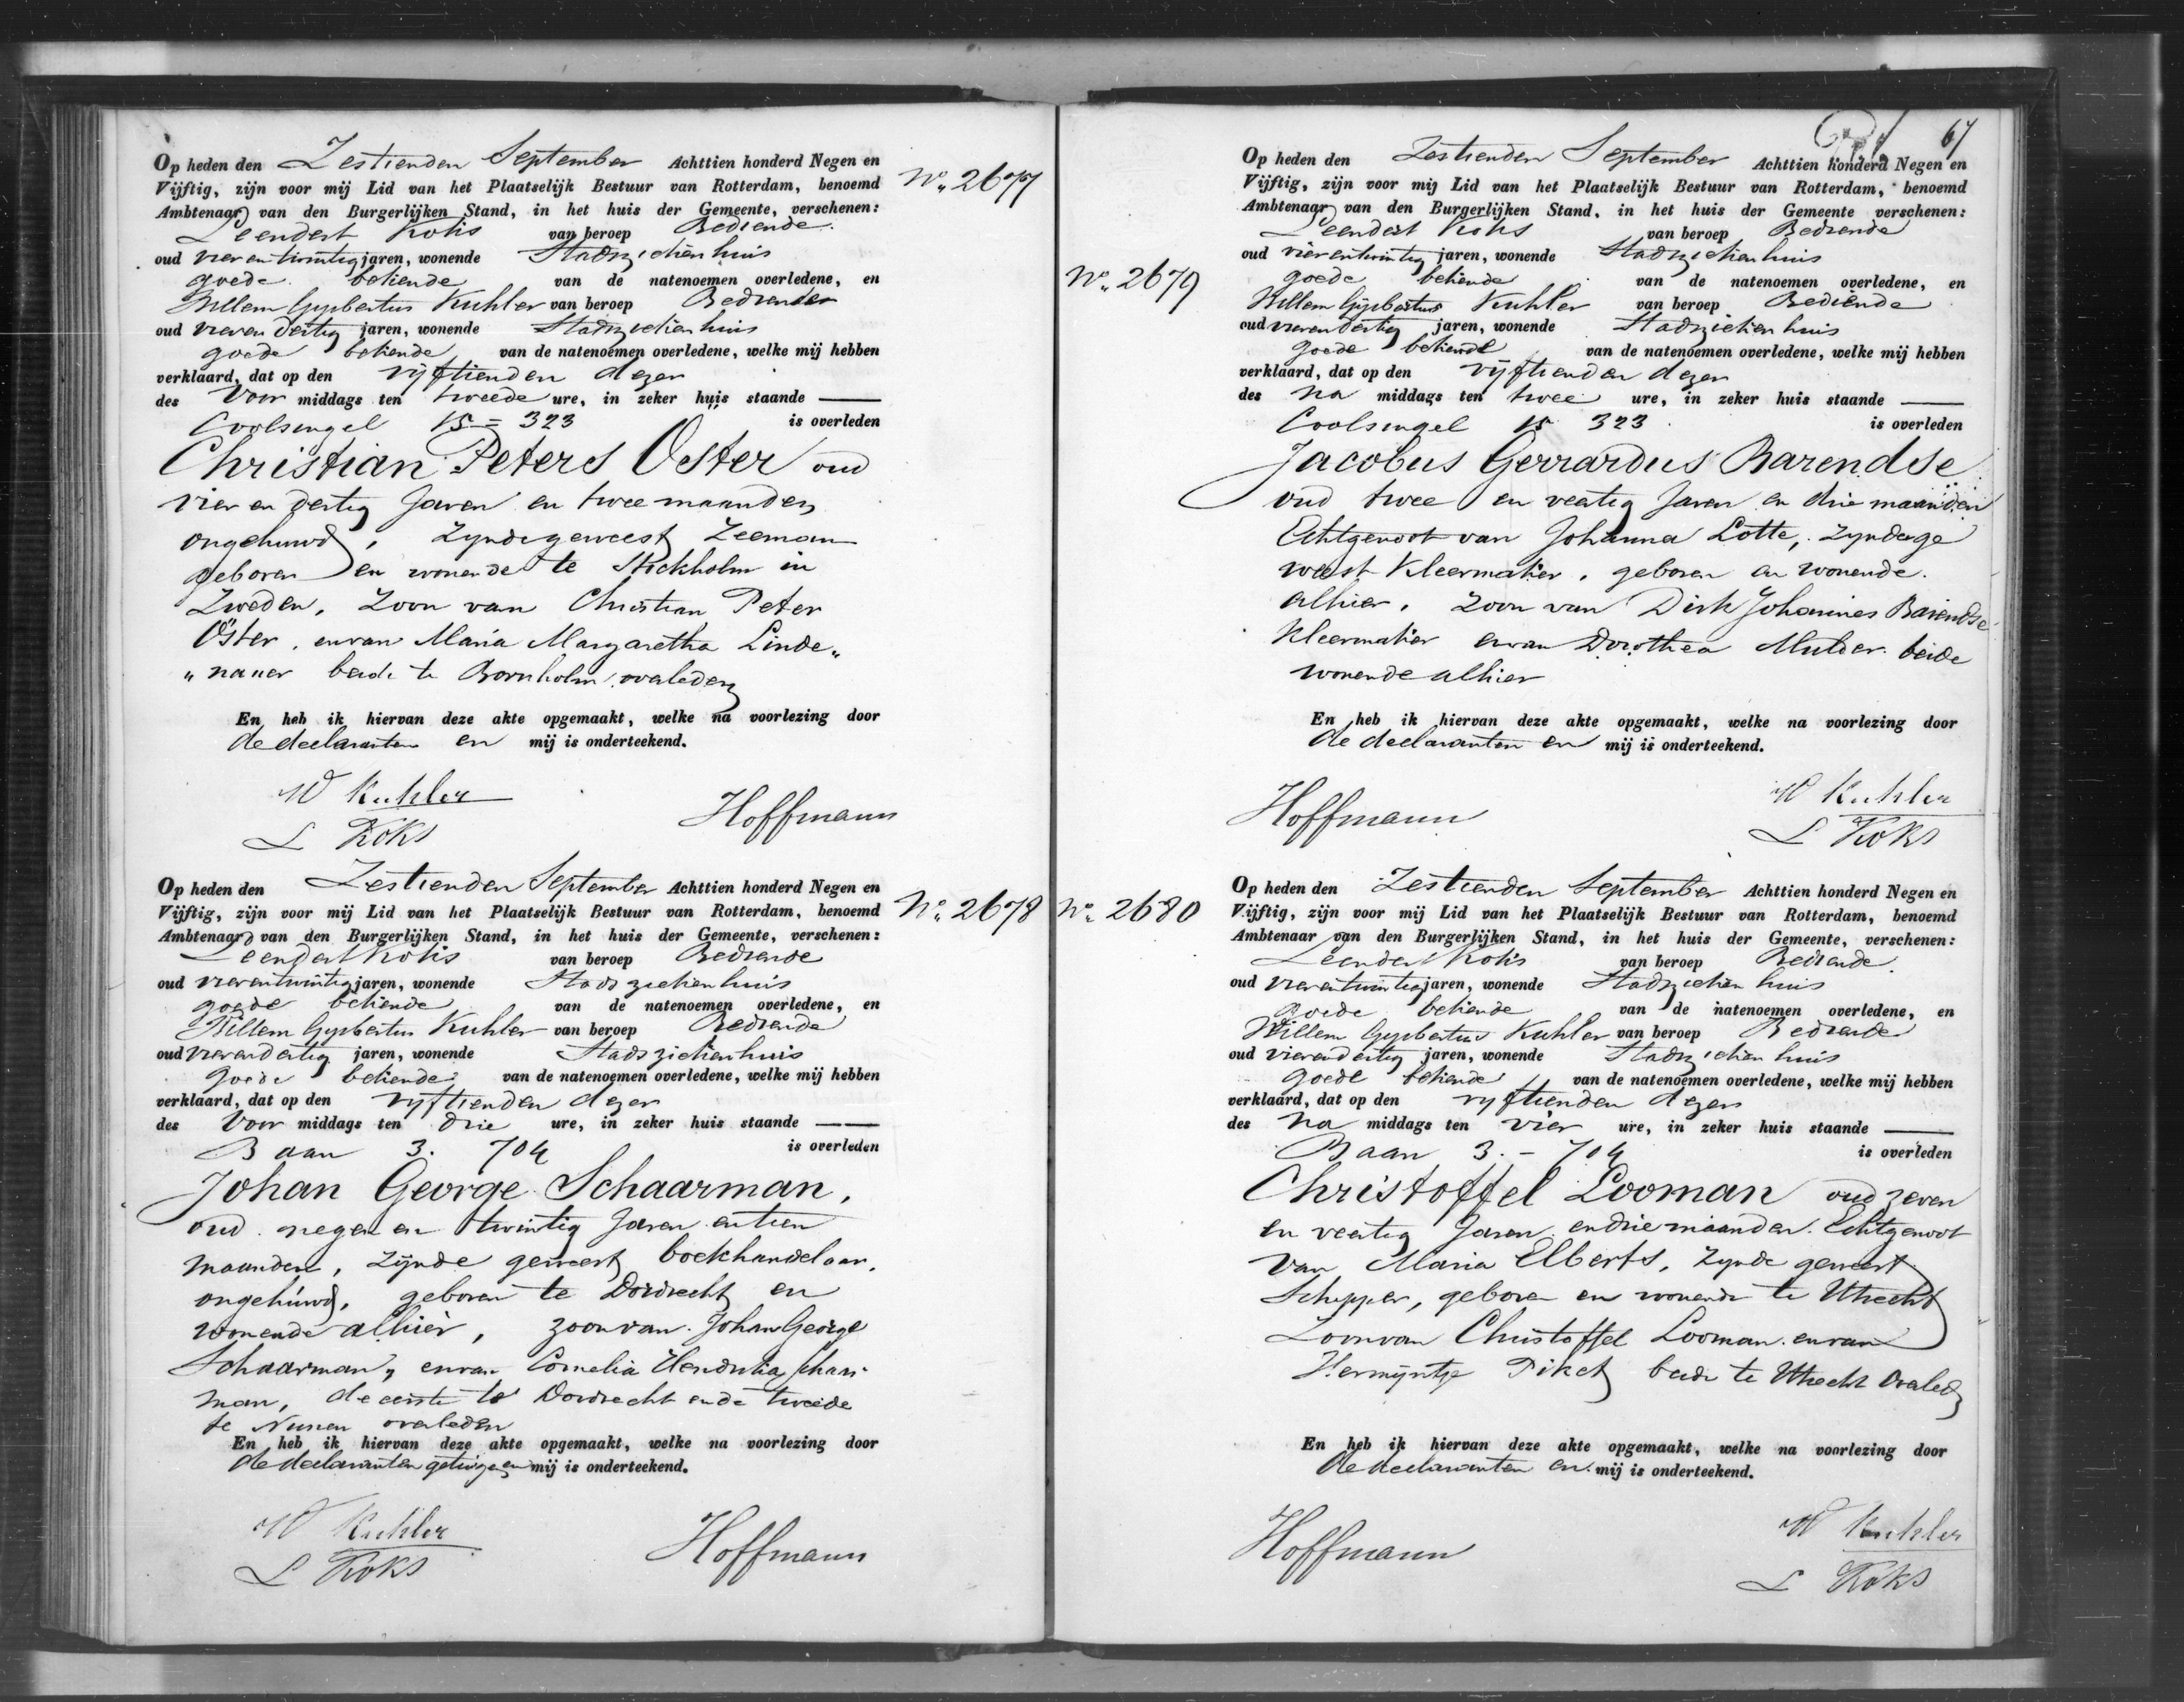 Op heden den Zestienden September Achttien honderd Negen en
Vijftig, zijn voor mij Lid van het Plaatselijk Bestuur van Rotterdam, benoemd
Ambtenaar van den Burgerlijken Stand, in het huis der Gemeente, verschenen:
Leendert Koks van beroep Bediende
oud vier en twintig jaren, wonende Stadsziekenhuis
goede bekende van de natenoemen overledene, en
Willem Gysbertus Kuhler van beroep Bediende
oud vier en dertig jaren, wonende Stadsziekenhuis
goede bekende van de natenoemen overledene, welke mij hebben
verklaard, dat op den vijftienden dezer
des Voor middags ten tweede ure, in zeker huis staande
Coolsingel 15 = 323 is overleden
Christian Peters Öster oud
vier en dertig Jaren en twee maanden
ongehuwd, Zynde geweest Zeeman
geboren en wonende te Stockholm in
Zweden, Zoon van Christian Peter
Öster, en van Maria Margaretha Linde„
„naner beide te Bornholm overleden
En heb ik hiervan deze akte opgemaakt, welke na voorlezing door
de declaranten en mij is onderteekend.
W Kuhler
L Koks
Hoffmann
No. 2677
Op heden den Zestienden September Achttien honderd Negen en
Vijftig, zijn voor mij Lid van het Plaatselijk Bestuur van Rotterdam, benoemd
Ambtenaar van den Burgerlijken Stand, in het huis der Gemeente, verschenen:
Leendert Koks van beroep Bediende
oud vier en twintig jaren, wonende Stads ziekenhuis
goede bekende van de natenoemen overledene, en
Willem Gysbertus Kuhler van beroep Bediende
oud vier en dertig jaren, wonende Stads ziekenhuis
goede bekende van de natenoemen overledene, welke mij hebben
verklaard, dat op den vyftienden dezer
des Voor middags ten drie ure, in zeker huis staande
Baan 3. 704 is overleden
Johan George Schaarman,
oud negen en twintig Jaren en tien
maanden, zijnde geweest boekhandelaar,
ongehuwd, geboren te Dordrecht en
wonende alhier, zoon van Johan George
Schaarman, en van Cornelia Hendrika Schaar
man, de eerste te Dordrecht en de tweede
te overleden
En heb ik hiervan deze akte opgemaakt, welke na voorlezing door
de declaranten getuigen en mij is onderteekend.
W Kuhler
L Koks
Hoffmann
No. 2678
67
Op heden den Zestienden September Achttien honderd Negen en
Vijftig, zijn voor mij Lid van het Plaatselijk Bestuur van Rotterdam, benoemd
Ambtenaar van den Burgerlijken Stand, in het huis der Gemeente verschenen:
Leendert Koks van beroep Bediende
oud vier en twintig jaren, wonende Stadsziekenhuis
goede bekende van de natenoemen overledene, en
Willem Gijsbertus Kuhler van beroep Bediende
oud vier en dertig jaren, wonende Stadsziekenhuis
goede bekende van de natenoemen overledene, welke mij hebben
verklaard, dat op den vijftienden dezer
des Na middags ten twee ure, in zeker huis staande
Coolsingel 15 323 is overleden
Jacobus Gerrardus Barendse
oud twee en veertig Jaren en drie maanden
Echtgenoot van Johanna Lotte, Zynde ge
weest Kleermaker, geboren en wonende
alhier, Zoon van Dirk Johannes Barendse
Kleermaker en van Dorothea Mulder beide
wonende alhier
En heb ik hiervan deze akte opgemaakt, welke na voorlezing door
de declaranten en mij is onderteekend.
Hoffmann
W Kuhler
L Koks
No. 2679
Op heden den Zestienden September Achttien honderd Negen en
Vijftig, zijn voor mij Lid van het Plaatselijk Bestuur van Rotterdam, benoemd
Ambtenaar van den Burgerlijken Stand, in het huis der Gemeente, verschenen:
Leendert Koks van beroep Bediende
oud vier en twintig jaren, wonende Stadsziekenhuis
goede bekende van de natenoemen overledene, en
Willem Gysbertus Kuhler van beroep Bediende
oud vier en dertig jaren, wonende Stadsziekenhuis
goede bekende van de natenoemen overledene, welke mij hebben
verklaard, dat op den vyftienden dezer
des Na middags ten vier ure, in zeker huis staande
Baan 3. - 704 is overleden
Christoffel Looman oud zeven
en veertig Jaren en drie maanden. Echtgenoot
van Maria Elberts, Zynde geweest
Schipper, geboren en wonende te Utrecht
Zoon van Christoffel Looman en van
Hermijntje Piket beide te Utrecht overleden
En heb ik hiervan deze akte opgemaakt, welke na voorlezing door
de declaranten en mij is onderteekend.
Hoffmann
W Kuhler
L Koks
No. 2680